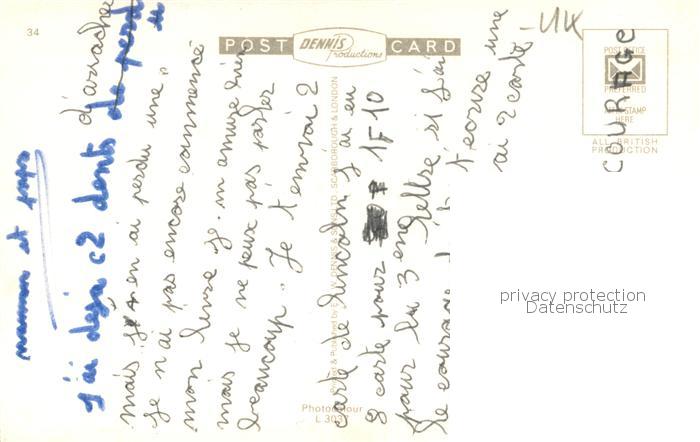 34
POST CARD
DENNIS
Productions
UK
POST OFFICE
PREFERRED
STAMP
HERE
ALL BRITISH
PRODUCTION
COURAGE
maman et papa
j'ai déjà 2 dents de perdu
d'arraché
mais j'en ai perdu une
je n'ai pas encore commencé
mon livre je m'amuse bien
mais je ne peux pas parler
beaucoup. Je t'envoi 2
carte de lincoln j'ai eu
8 carte pour 1F10
pour la 3 eme lettre si j'ai
le courage
t'écrire une
ai 2 carte
Published by E.T.W. DENNIS & SONS LTD. SCARBOROUGH & LONDON
Photocolour
L 3037
privacy protection
Datenschutz